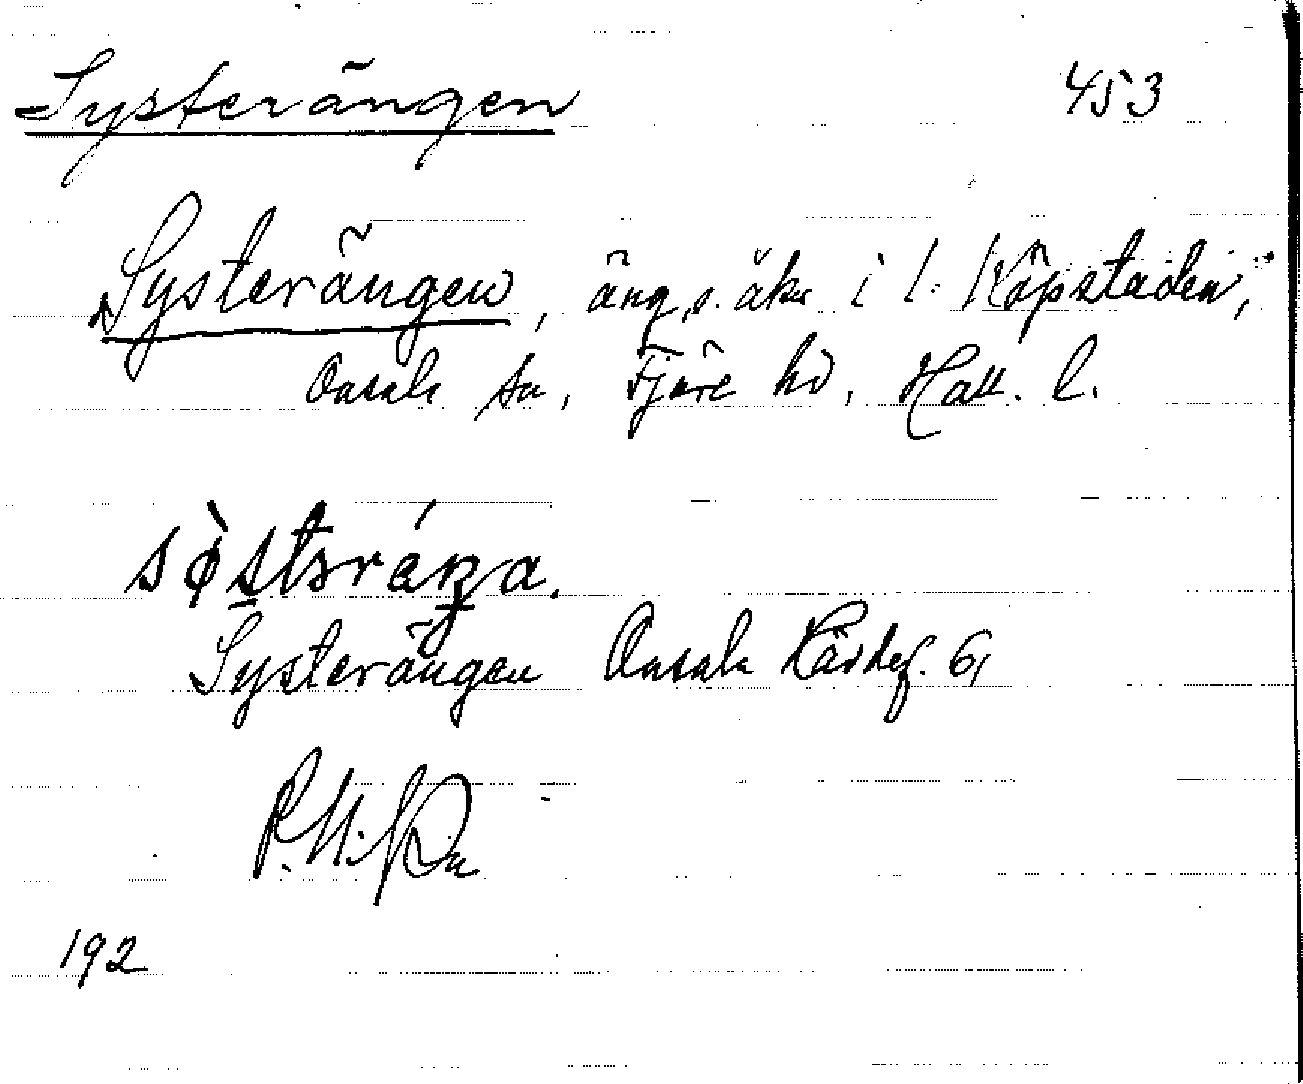 Systerängen 453
Systerängen, äng, o. åker i l. Köpstaden,
Onsala sn, Fjäre hd, Hall. l.
Systerängen Onsala 61
192